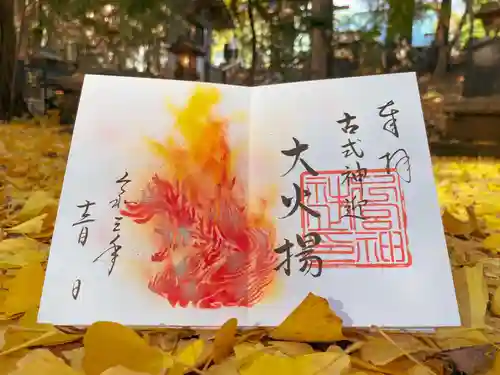 奉拝
古式神迎
大火揚
令和三年
十一月 日